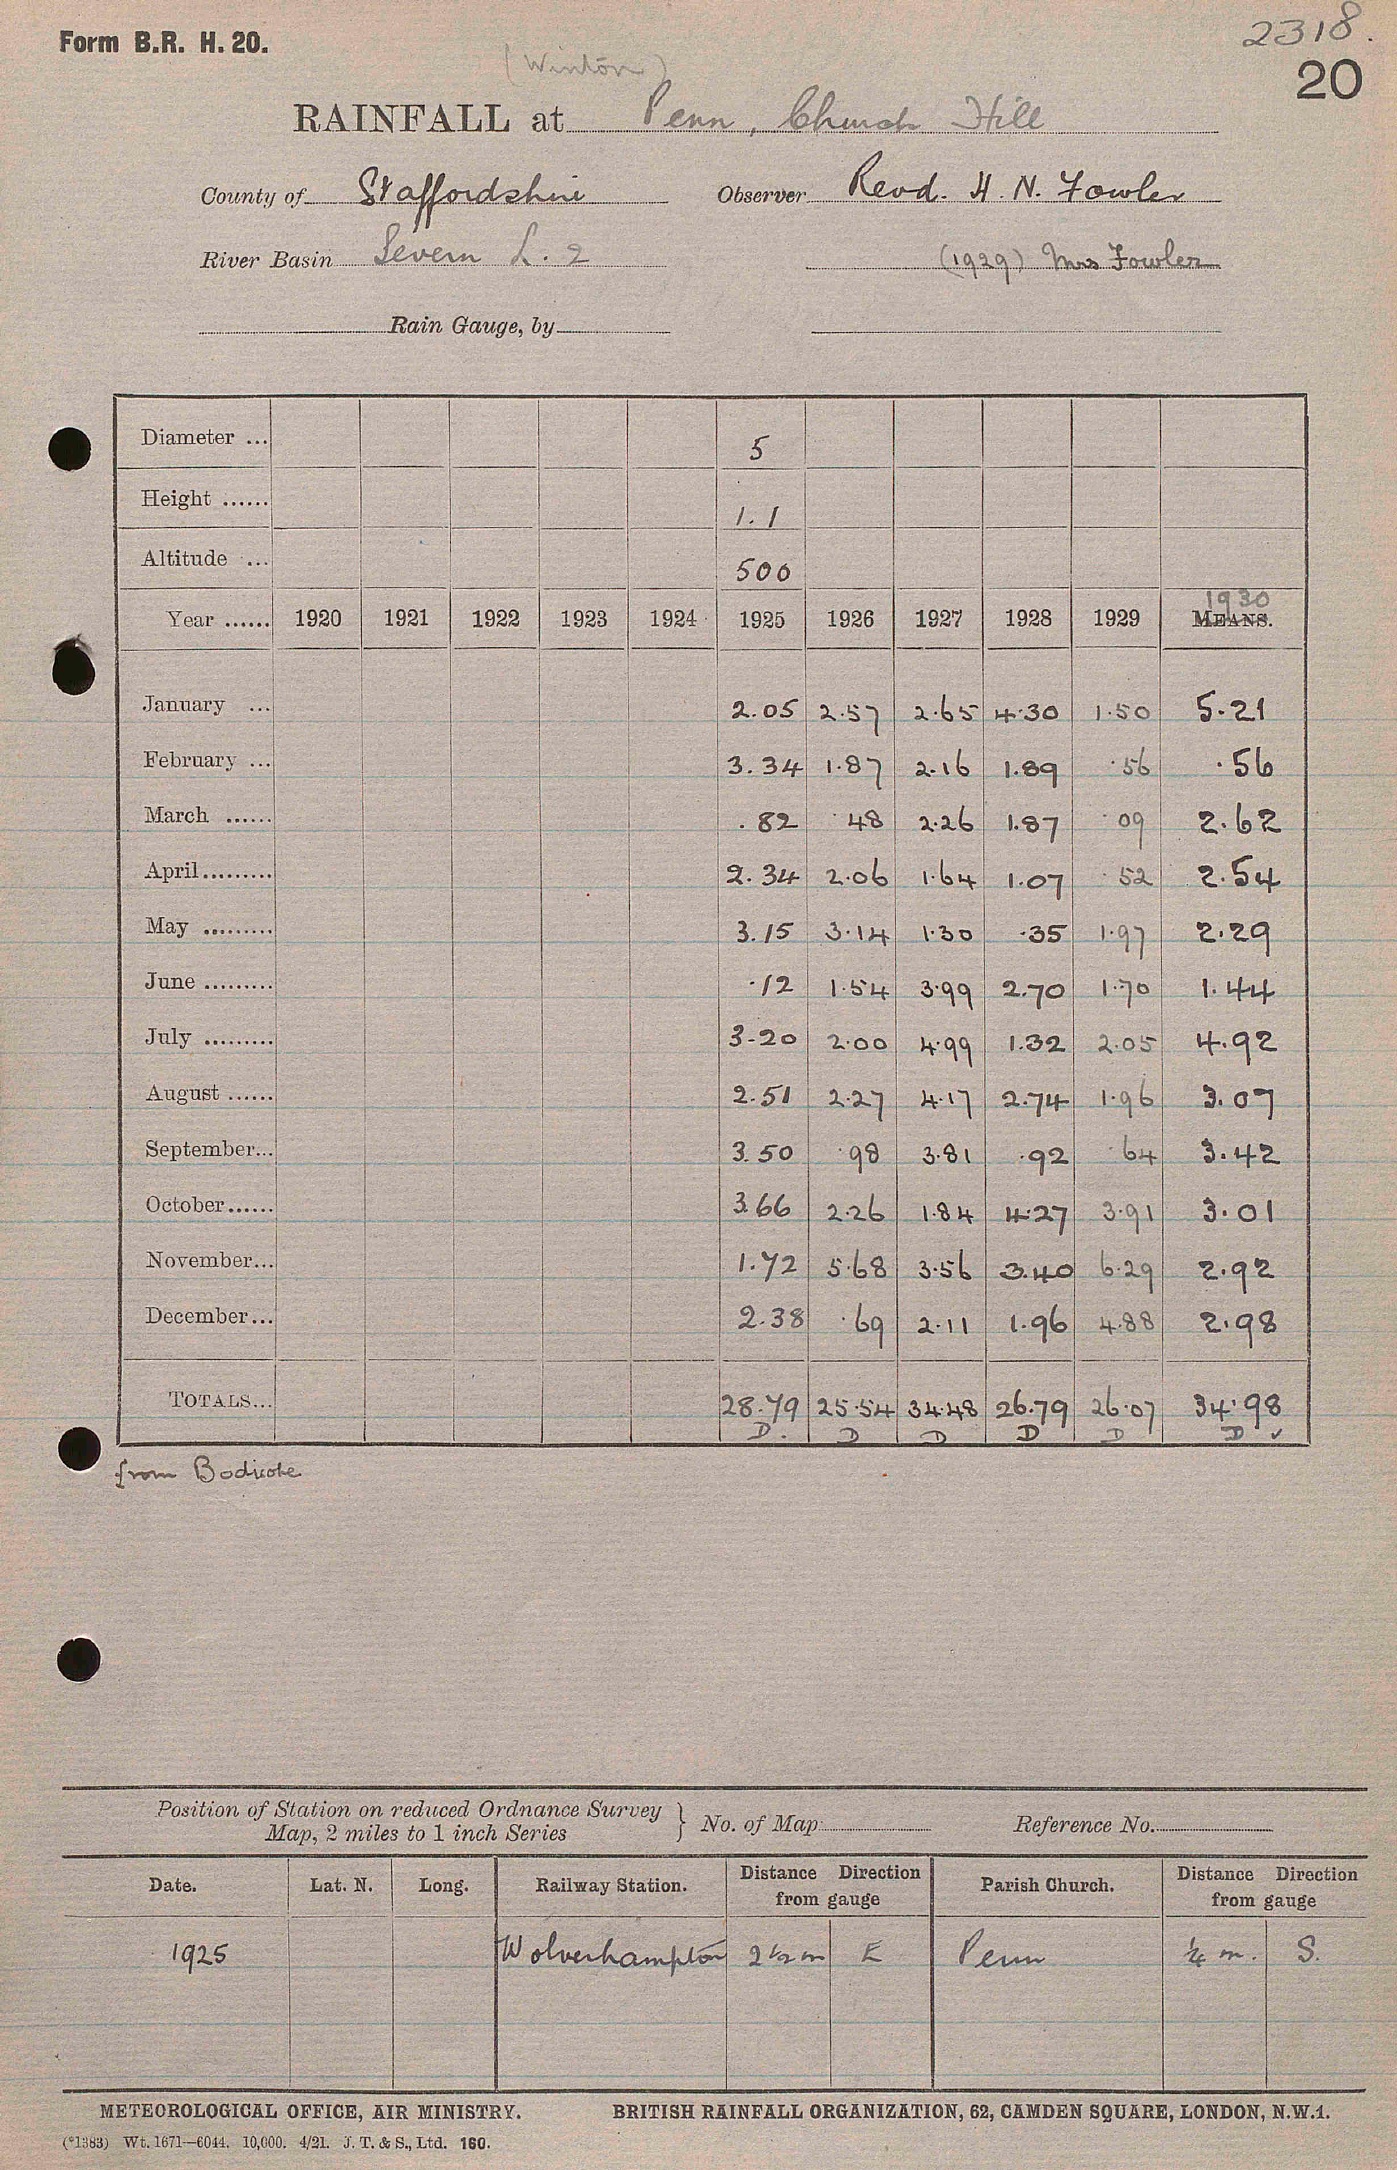 Form B.R. H. 20.
2318.
20
(Winton)
RAINFALL at Penn, Church Hill
County of Staffordshire Observer Revd. H. N. Fowler
River Basin Severn L. 2 (1929) Mrs Fowler
Rain Gauge, by
Diameter ... 5
Height ...... 1.1
Altitude ... 500
1930
Year ...... 1920 1921 1922 1923 1924 1925 1926 1927 1928 1929 MEANS.
January ... 2.05 2.57 2.65 4.30 1.50 5.21
February ... 3.34 1.87 2.16 1.89 .56 .56
March ...... .82 .48 2.26 1.87 .09 2.62
April......... 2.34 2.06 1.64 1.07 .52 2.54
May ......... 3.15 3.14 1.30 .35 1.97 2.29
June ......... .12 1.54 3.99 2.70 1.70 1.44
July ......... 3.20 2.00 4.99 1.32 2.05 4.92
August ...... 2.51 2.27 4.17 2.74 1.96 3.07
September... 3.50 .98 3.81 .92 .64 3.42
October...... 3.66 2.26 1.84 4.27 3.91 3.01
November... 1.72 5.68 3.56 3.40 6.29 2.92
December... 2.38 .69 2.11 1.96 4.88 2.98
TOTALS... 28.79 25.54 34.48 26.79 26.07 34.98
D. D D D D D ✓
from Bodicote
Position of Station on reduced Ordnance Survey
Map, 2 miles to 1 inch Series } No. of Map Reference No.
Date. Lat. N. Long. Railway Station. Distance Direction from gauge Parish Church. Distance Direction from gauge
1925 Wolverhampton 2 1/2 m E Penn 1/4 m. S.
METEOROLOGICAL OFFICE, AIR MINISTRY. BRITISH RAINFALL ORGANIZATION, 62, CAMDEN SQUARE, LONDON, N.W.1.
(*1383) Wt. 1671—6044. 10,000. 4/21. J. T. & S., Ltd. 160.